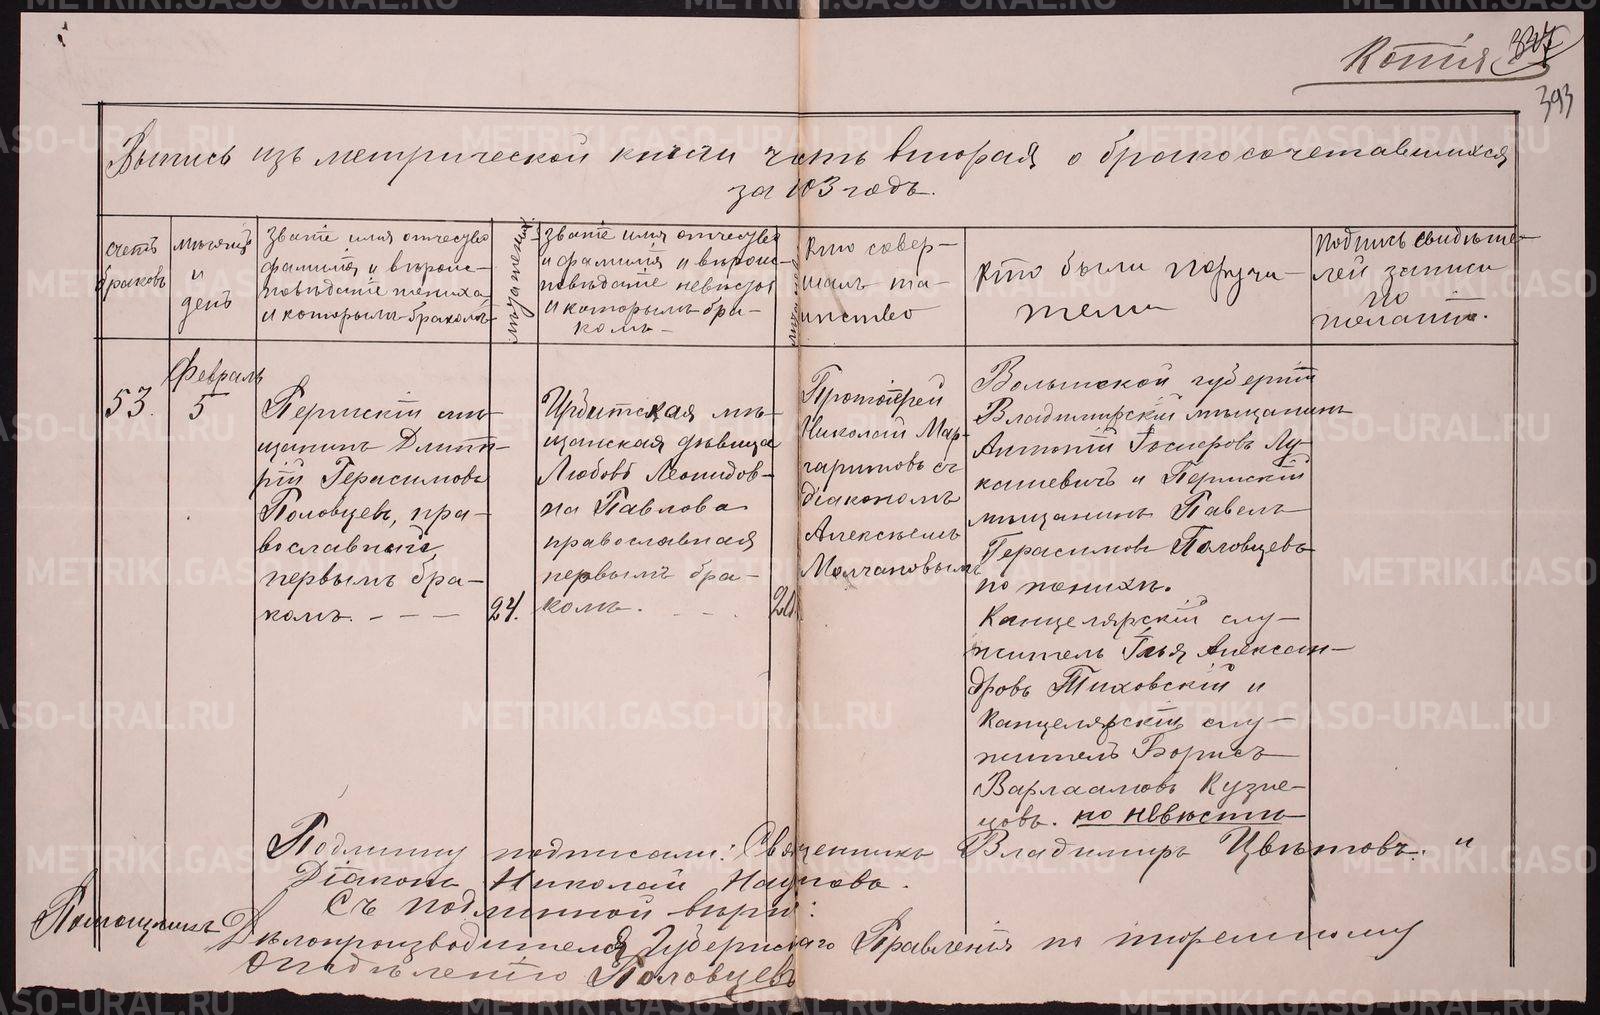 Копія
393
Выпись изъ метрической книги часть вторая о бракосочетавшихся
за 103 годъ.
счетъ
браковъ
мѣсяцъ
и
день
Званіе имя отчество
фамилія и вѣроис-
повѣданіе жениха
и которымъ бракомъ
лѣта жениха
Званіе имя отчество
и фамилія и вѣроис-
повѣданіе невѣсты
и которымъ бра-
комъ
Кто совер-
шалъ та-
инство
Кто были поручи-
тели
Подпись свидѣте-
лей записи
по
желанію.
53.
Февраль
5
Пермскій мѣ-
щанинъ Дмит-
рій Герасимовъ
Половцевъ, пра-
вославный,
первымъ бра-
комъ. - - -
24.
Ирбитская мѣ-
щанская дѣвица
Любовь Леонидов-
на Павлова
православная
первымъ бра-
комъ. - -
Протоіерей
Николай Мар-
гаритовъ съ
діакономъ
Алексѣемъ
Молчановымъ
Волынской губерніи
Владимирскій мѣщанинъ
Антоній Іосифовъ Лу-
кашевичъ и Пермскій
мѣщанинъ Павелъ
Герасимовъ Половцевъ
по женихѣ.
Канцелярскій слу-
житель Илья Алексан-
дровъ Тиховскій и
Канцелярскій слу-
житель Борисъ
Варлаамовъ Кузне-
цовъ. по невѣстѣ
Подлинну подписали: Священникъ Владимиръ Цвѣтовъ. "
Діаконъ Николай Наумовъ.
Съ подлинной вѣрно:
Помощникъ Дѣлопроизводителя Губернскаго Правленія по тюремному
отдѣленію Половцевъ